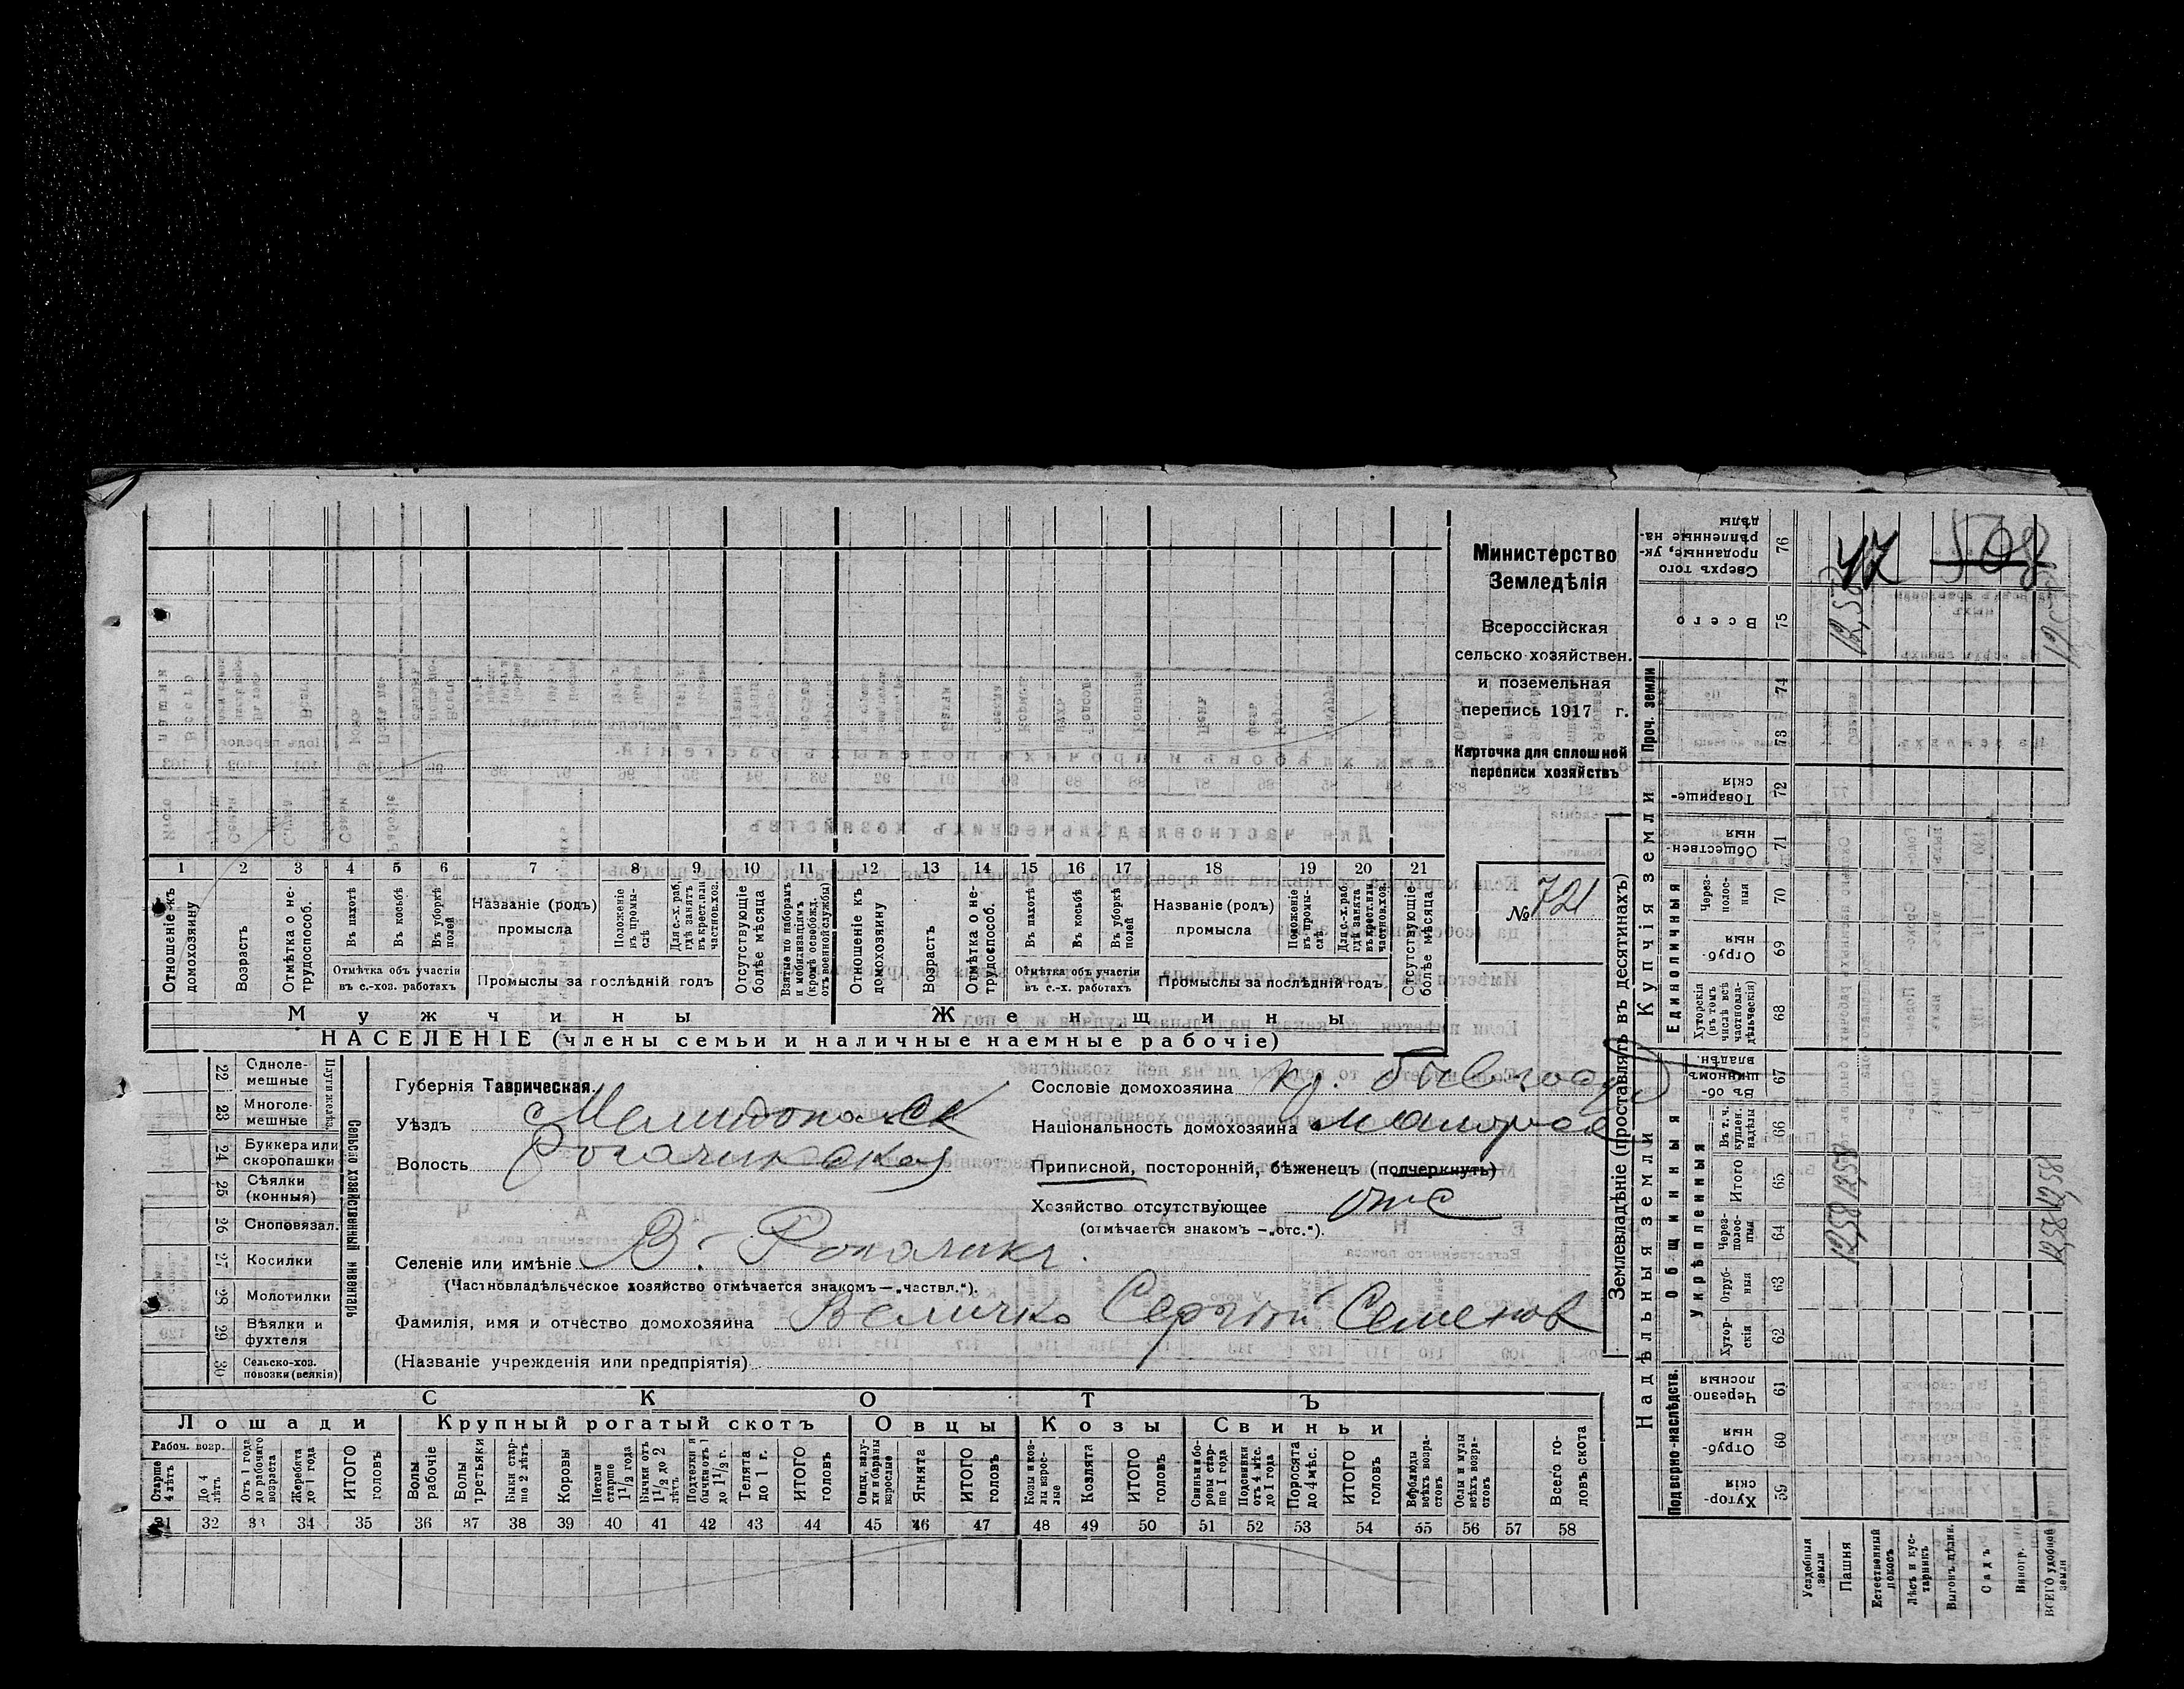 Министерство
Земледѣлія
Всероссійская
сельско-хозяйствен.
и поземельная
перепись 1917 г.
Карточка для сплошной
переписи хозяйствъ
№ 721
1 2 3 4 5 6 7 8 9 10 11 12 13 14 15 16 17 18 19 20 21
Отношеніе къ домохозяину
Возрастъ
Отмѣтка о не-трудоспособ.
Въ пахотѣ
Въ косьбѣ
Въ уборкѣ полей
Отмѣтка объ участіи въ с.-хоз. работахъ
Названіе (родъ) промысла
Положеніе въ промы-слѣ
Для с.-х. раб. гдѣ занятъ въ крест. или частнов. хоз.
Промыслы за послѣдній годъ
Отсутствующіе болѣе мѣсяца
Взятые по наборамъ и мобилизаціямъ (кромѣ освобожд. отъ военной службы)
Отношеніе къ домохозяину
Возрастъ
Отмѣтка о не-трудоспособ.
Въ пахотѣ
Въ косьбѣ
Въ уборкѣ полей
Отмѣтка объ участіи въ с.-х. работахъ
Названіе (родъ) промысла
Положеніе въ промы-слѣ
Для с.-х. раб. гдѣ занята въ крест. или частнов. хоз.
Промыслы за послѣдній годъ
Отсутствующіе болѣе мѣсяца
Мужчины Женщины
НАСЕЛЕНІЕ (члены семьи и наличные наемные рабочіе)
Сельско хозяйственный инвентарь
22 Одноле-мешные
23 Многоле-мешные
24 Буккера или скоропашки
25 Сѣялки (конныя)
26 Сноповязал.
27 Косилки
28 Молотилки
29 Вѣялки и фухтеля
30 Сельско-хоз. повозки (всякія)
Губернія Таврическая.
Уѣздъ Мелитопольск
Волость Рогачикская
Сословіе домохозяина кр.
Національность домохозяина малорос
Приписной, посторонній, бѣженецъ (подчеркнуть)
Хозяйство отсутствующее отс
(отмѣчается знакомъ —„отс.“).
Селеніе или имѣніе В. Рогачикъ.
(Частновладѣльческое хозяйство отмѣчается знакомъ—„частвл.“).
Фамилія, имя и отчество домохозяина Величко Сергѣй Семенов
(Названіе учрежденія или предпріятія)
СКОТЪ
Лошади Крупный рогатый скотъ Овцы Козы Свиньи
Рабоч. возр.
Старше 4 лѣтъ
До 4 лѣтъ
Отъ 1 года до рабочаго возраста
Жеребята до 1 года
ИТОГО головъ
Волы рабочіе
Волы третьяки
Быки стар-ше 2 лѣтъ
Коровы
Нетели старше 1½ года
Бычки отъ 1½ до 2 лѣтъ
Подтелки и бычки отъ 1 до 1½ г.
Телята до 1 г.
ИТОГО головъ
Овцы, валу-хи и бараны взрослые
Ягнята
ИТОГО головъ
Козы и коз-лы взрос-лые
Козлята
ИТОГО головъ
Свиньи и бо-ровы стар-ше 1 года
Подсвинки отъ 4 мѣс. до 1 года
Поросята до 4 мѣс.
ИТОГО головъ
Верблюды всѣхъ возра-стовъ
Ослы и мулы всѣхъ возра-стовъ
Всего го-ловъ скота
31 32 33 34 35 36 37 38 39 40 41 42 43 44 45 46 47 48 49 50 51 52 53 54 55 56 57 58
Землевладѣніе (проставлять въ десятинахъ)
Надѣльныя земли Купчія земли Проч. земли
Подворно-наслѣдств. Общинныя Единоличныя
Укрѣпленныя
Хутор-скія 59
Отруб-ныя 60
Черезпо-лосныя 61
Хутор-скія 62
Отруб-ныя 63
Через-полос-ныя 64
Итого 65
Въ т. ч. куплен. надѣлы 66
Въ об-щинномъ владѣн. 67
Хуторскія (въ томъ числѣ всѣ частновла-дѣльческія) 68
Отруб-ныя 69
Через-полос-ныя 70
Обществен-ныя 71
Товарище-скія 72
73
74
Всего 75
Сверхъ того проданные, ук-рѣпленные на-дѣлы 76
Усадебныя земли
Пашня 12,58 12,58 12,58
Естественный покосъ
Лѣсъ и кус-тарникъ
Выгонъ дѣлян.
Садъ
Виногр.
ВСЕГО удобной земли 12,58 12,58
47
508